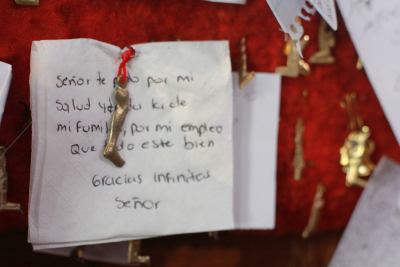 Señor te pido por mi
Salud y la de
mi familia, por mi empleo
Que todo este bien
Gracias infinitas
Señor